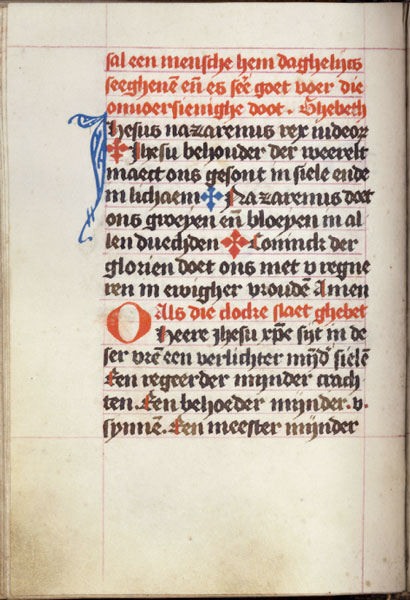 sal een mensche hem daghelijcs
seeghenē eñ es seē goet voer die
onuoersienighe doot. Ghebeth
Ihesus nazarenus rex iudeoꝝ
✠ Ihesu behouder der weerelt
maect ons gesont in siele ende
in lichaem ✠ Nazarenus doet
ons groeyen eñ bloeyen in al
len duechden ✠ Coninck der
glorien doet ons met v regne
ren in ewigher vrouden Amen
Als die clocke slaet ghebet
O Heere Ihesu xp̄e sijt in de
ser vrē een verlichter mijd̄ sielē
Een regeerder mijnder crach
ten. Een behoeder mijnder .v.
synnē. Een meester mijnder